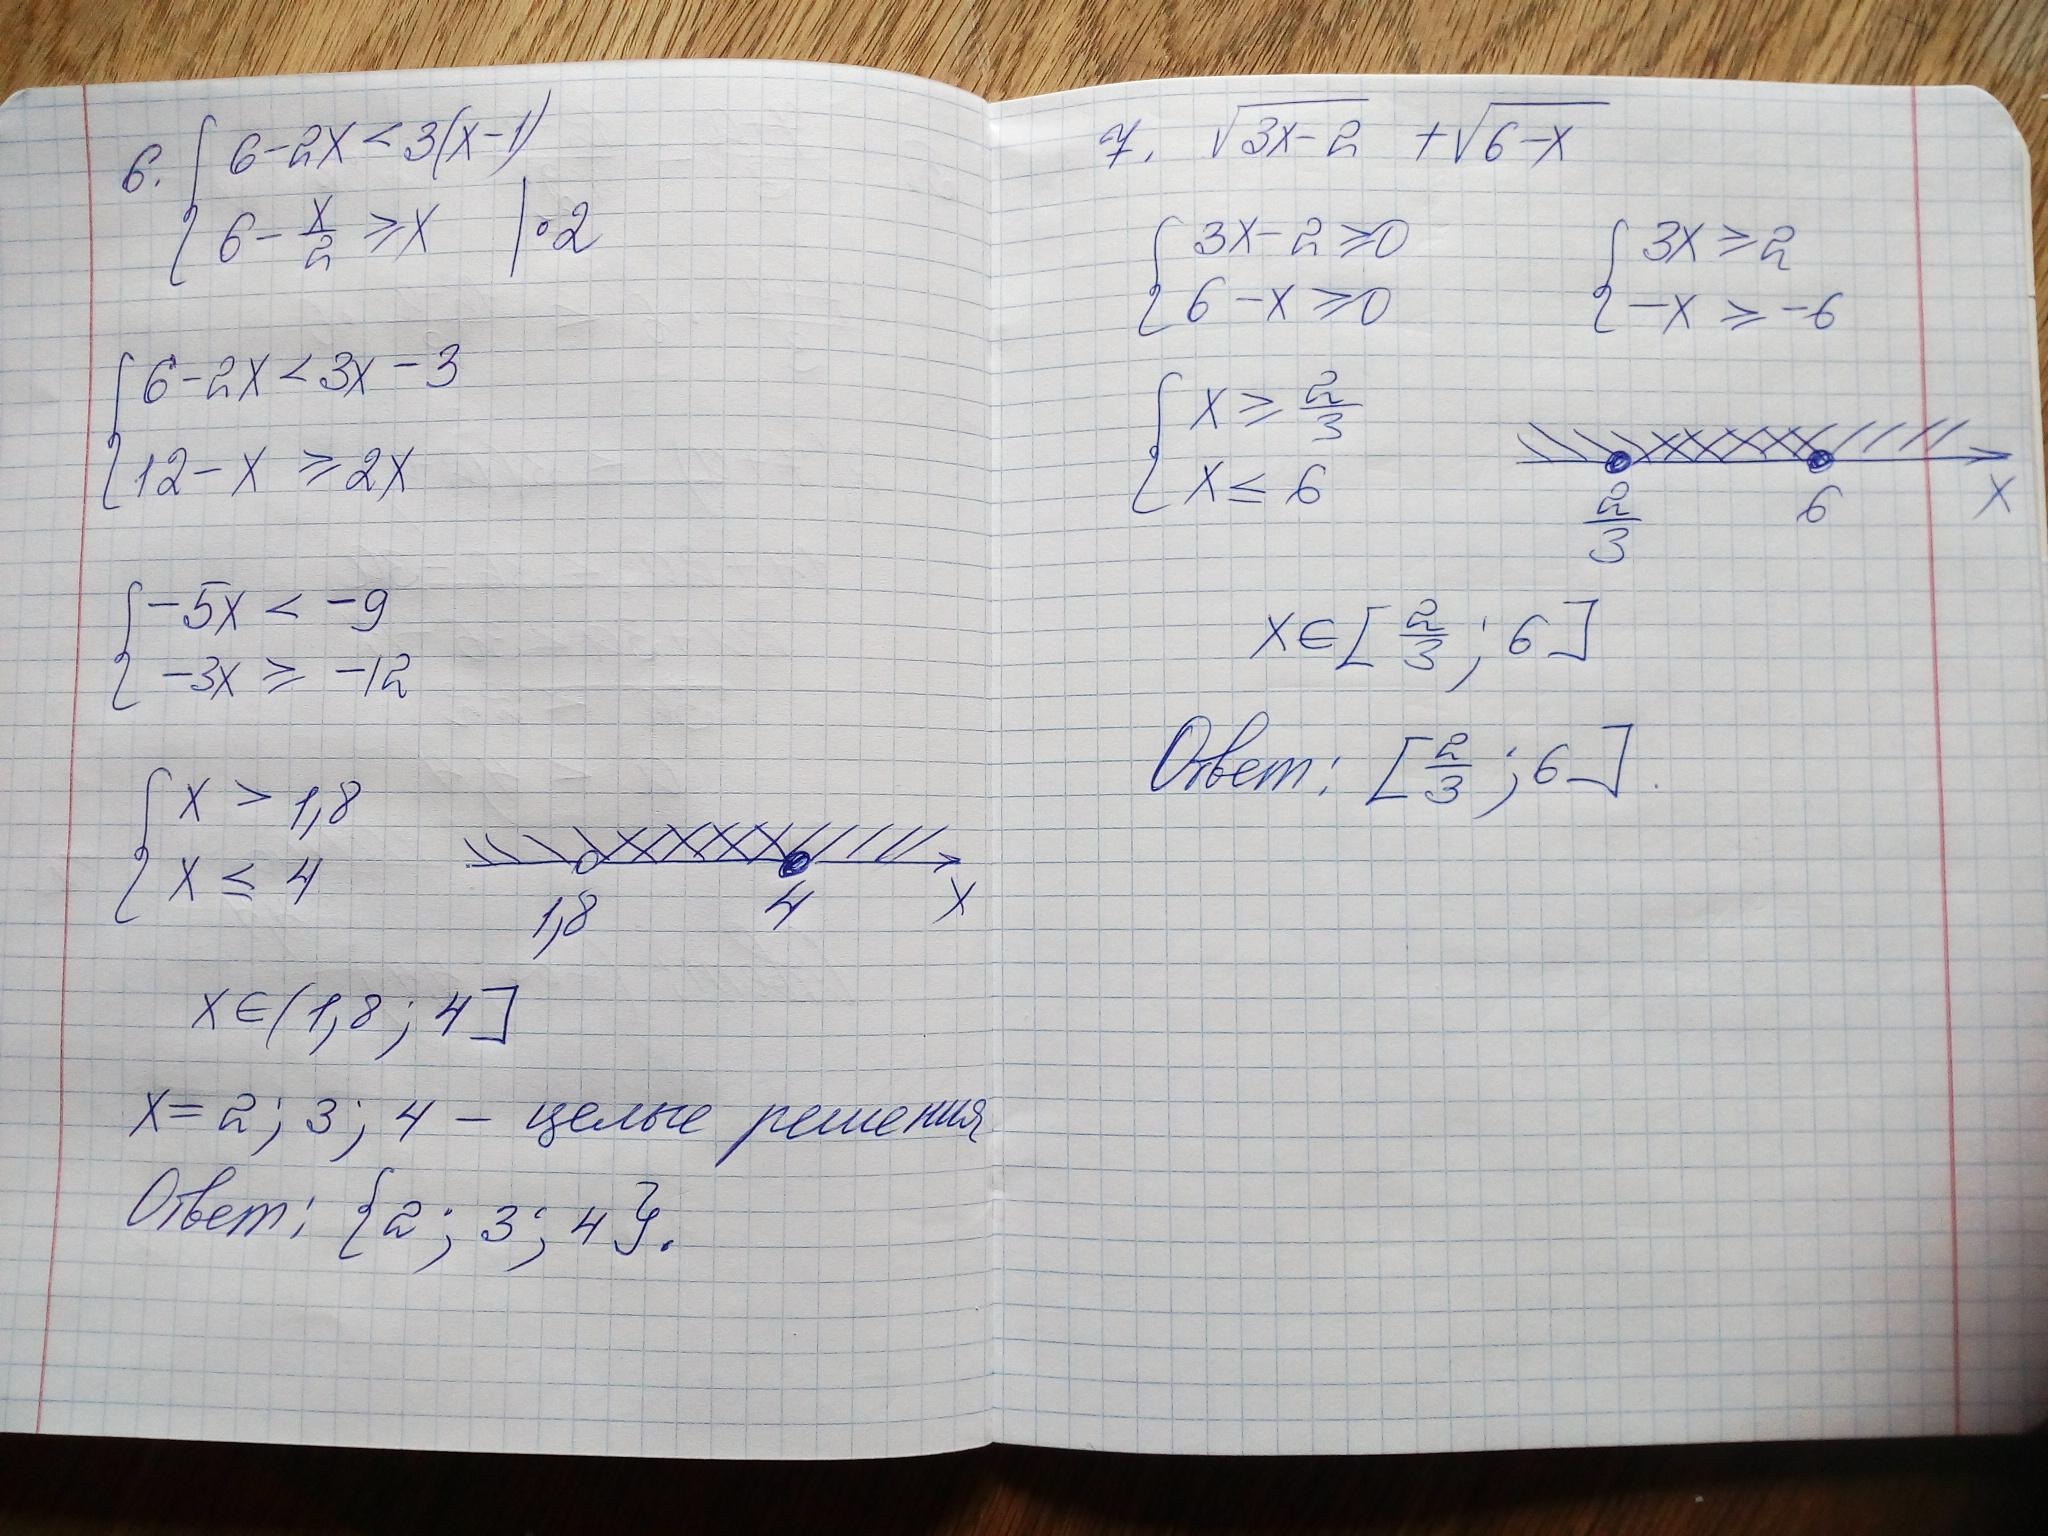 6. { 6-2x<3(x-1)
{ 6-x/2 ≥x |·2
{ 6-2x<3x-3
{ 12-x ≥2x
{ -5x < -9
{ -3x ≥ -12
{ x > 1,8
{ x ≤ 4
1,8 4 x
x∈(1,8; 4]
x=2; 3; 4 – целые решения
Ответ: {2; 3; 4}.
7. √(3x-2) +√(6-x)
{ 3x-2≥0 { 3x≥2
{ 6-x≥0 { -x ≥ -6
{ x ≥ 2/3
{ x ≤ 6
2/3 6 x
x∈[2/3; 6]
Ответ: [2/3; 6].